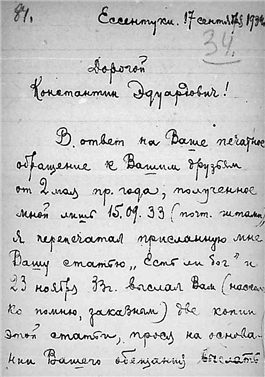 84.
Ессентуки. 17 сентября 1934
34.
Дорогой
Константин Эдуардович!
В ответ на Ваше печатное
обращение к Вашим друзьям
от 2 мая пр. года, полученное
мной лишь 15.09.33 (почт. штамп),
я перепечатал присланную мне
Вашу статью „Есть ли бог" и
23 ноября 33 г. выслал Вам (насколь-
ко помню, заказным) две копии
этой статьи, прося на основа-
нии Вашего обещания выслать